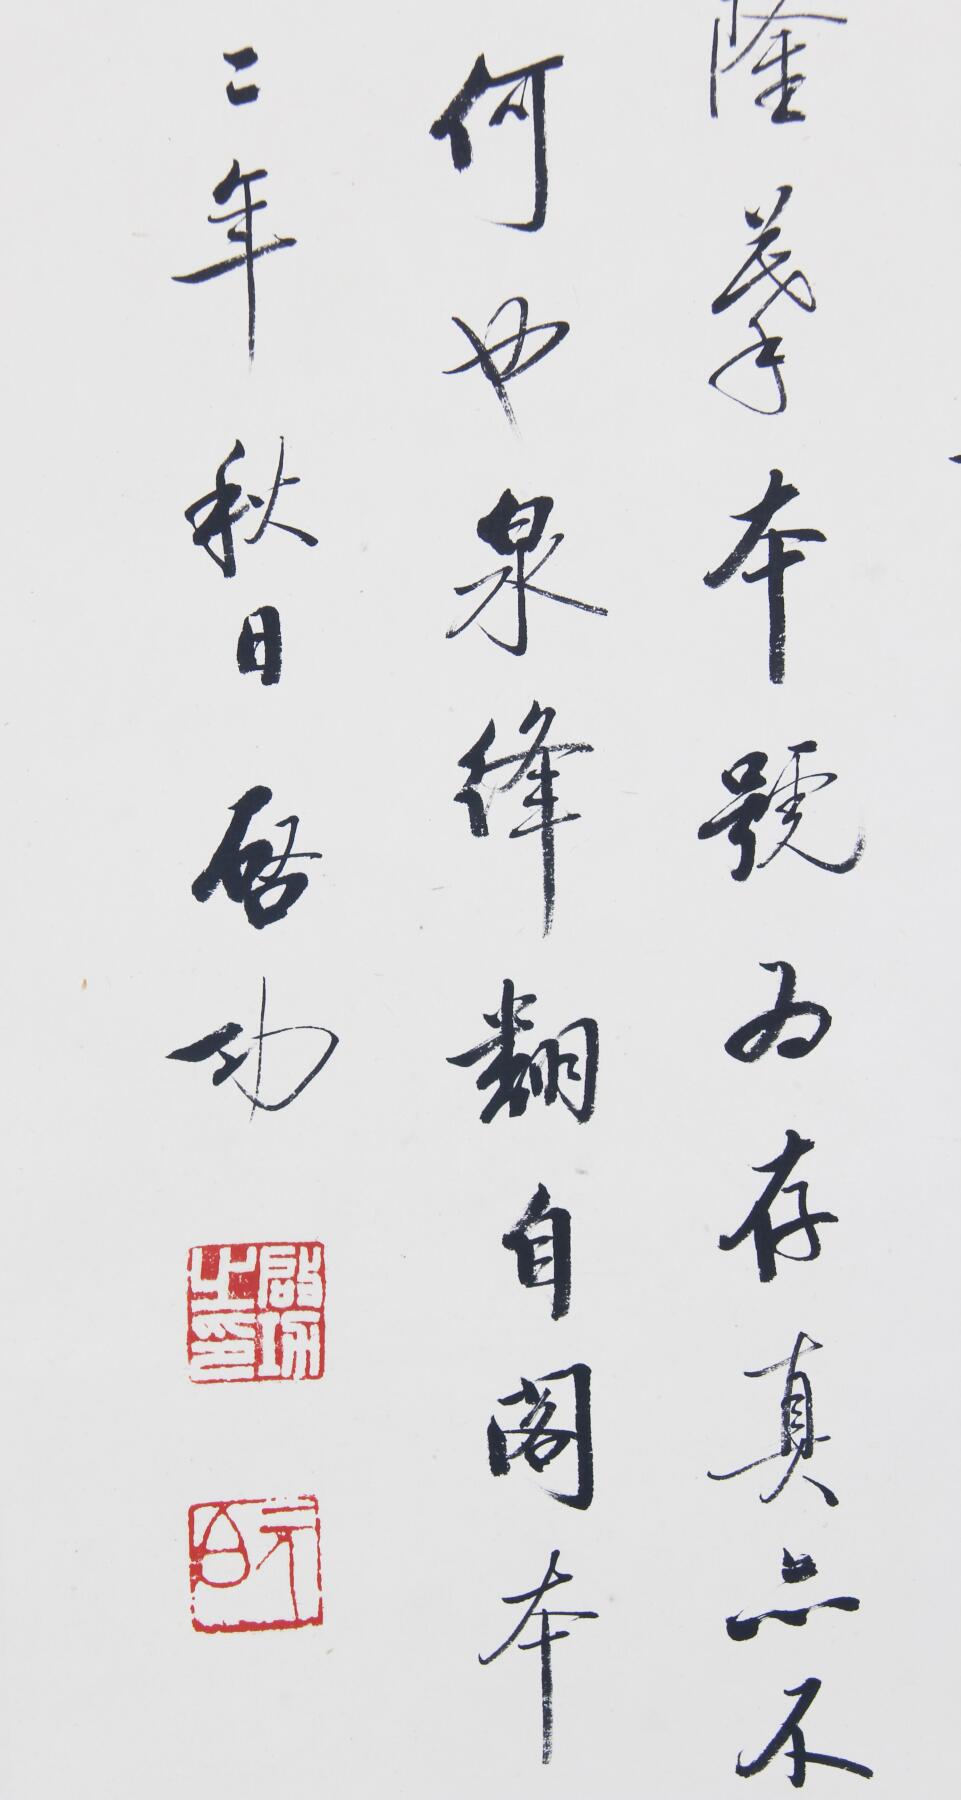 隆摹本號为存真亦不
何也泉绛翻自阁本
二年秋日启功
啟功之印
元白